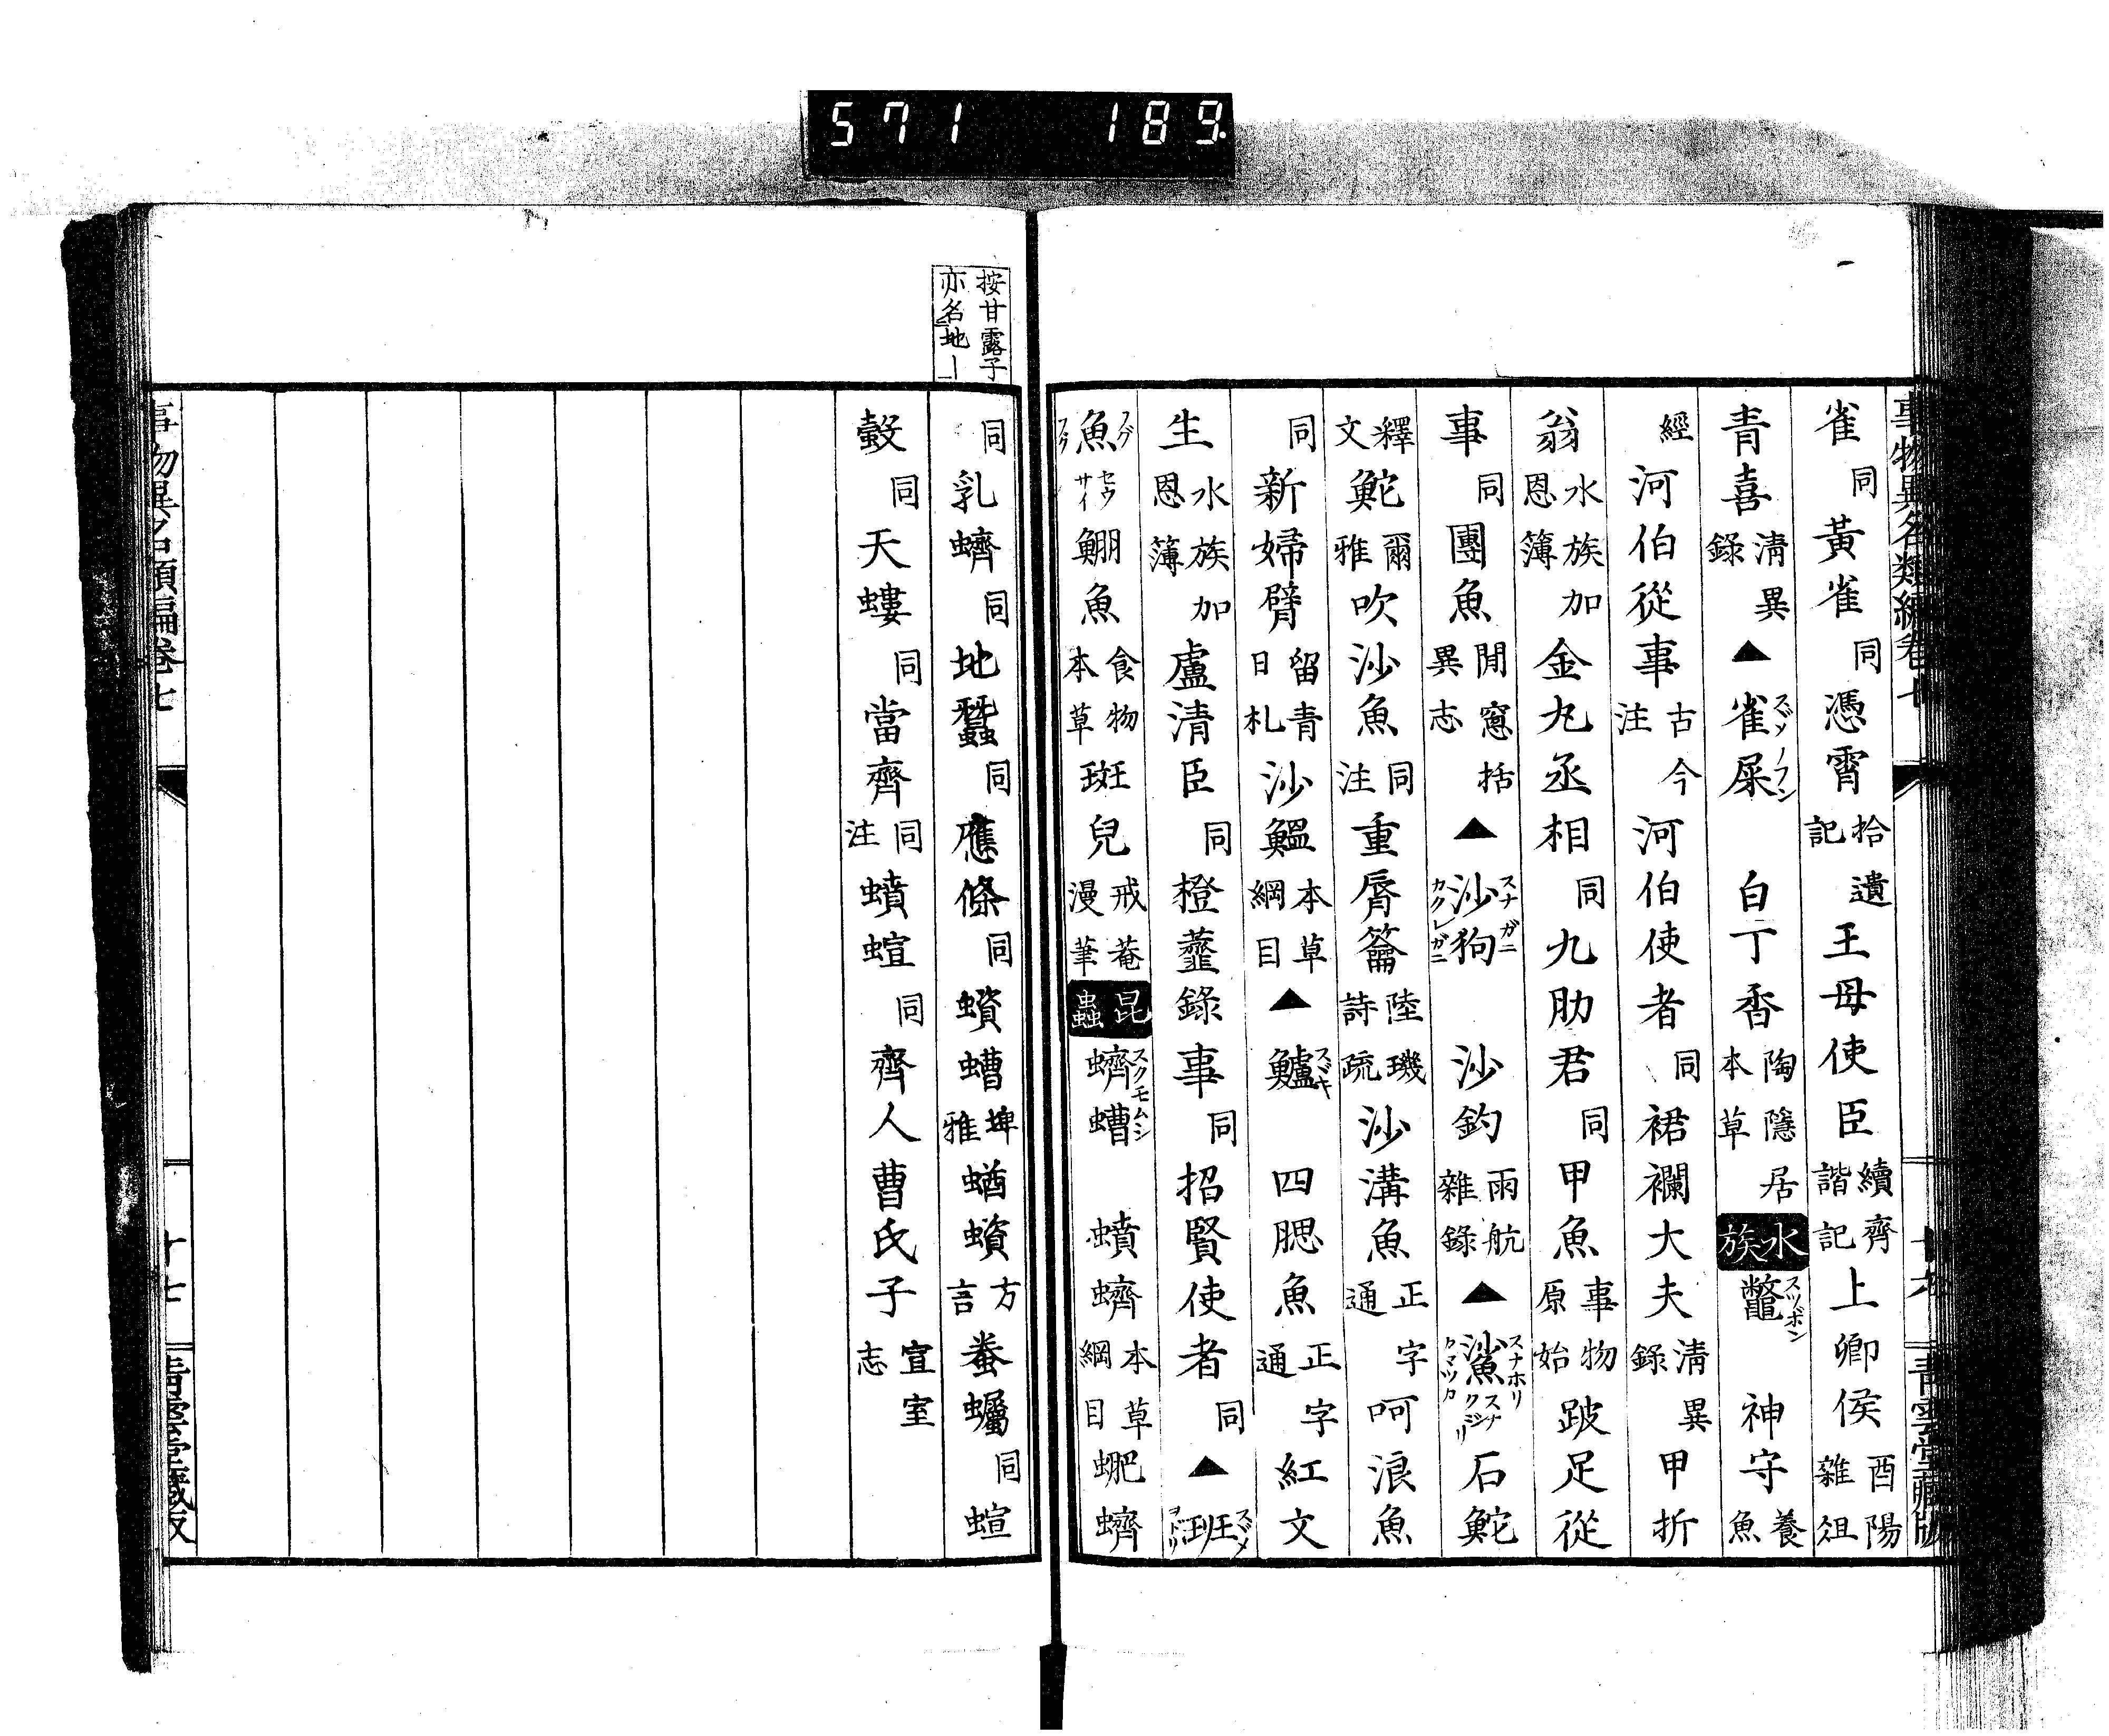 571 189
事物異名類編卷七
雀同黃雀同憑霄拾遺記王母使臣續齊諧記上卿侯酉陽雜俎
青喜清異錄▲雀屎スヾメノフン白丁香陶隱居本草水族鼈スツポン神守養魚
經河伯從事古今注河伯使者同裙襴大夫清異錄甲折
翁水族加恩簿金丸丞相同九肋君同甲魚事物原始跛足從
事同團魚閒窻括異志▲沙狗スナガニカクレガニ沙鈎雨航雜錄▲鯊スナホリスナクジリカマツカ石鮀
釋文鮀爾雅吹沙魚同注重脣籥陸璣詩疏沙溝魚正字通呵浪魚
同新婦臂留青日札沙鰮本草綱目▲鱸スヾキ四腮魚正字通紅文
生水族加恩簿盧清臣同橙虀錄事同招賢使者同▲斑
魚鯝魚食物本草斑兒戒菴漫筆昆蟲蠐螬スクモムシ蟦蠐本草綱目蜰蠐
按甘露子
亦名地｜
同乳蠐同地蠶同應條同蠀螬埤雅蝤蠀方言蛬蠾同蝖
螜同天螻同當齊同注蟦蝖同齊人曹氏子宣室志
事物異名類編卷七
十七
青雲堂藏版